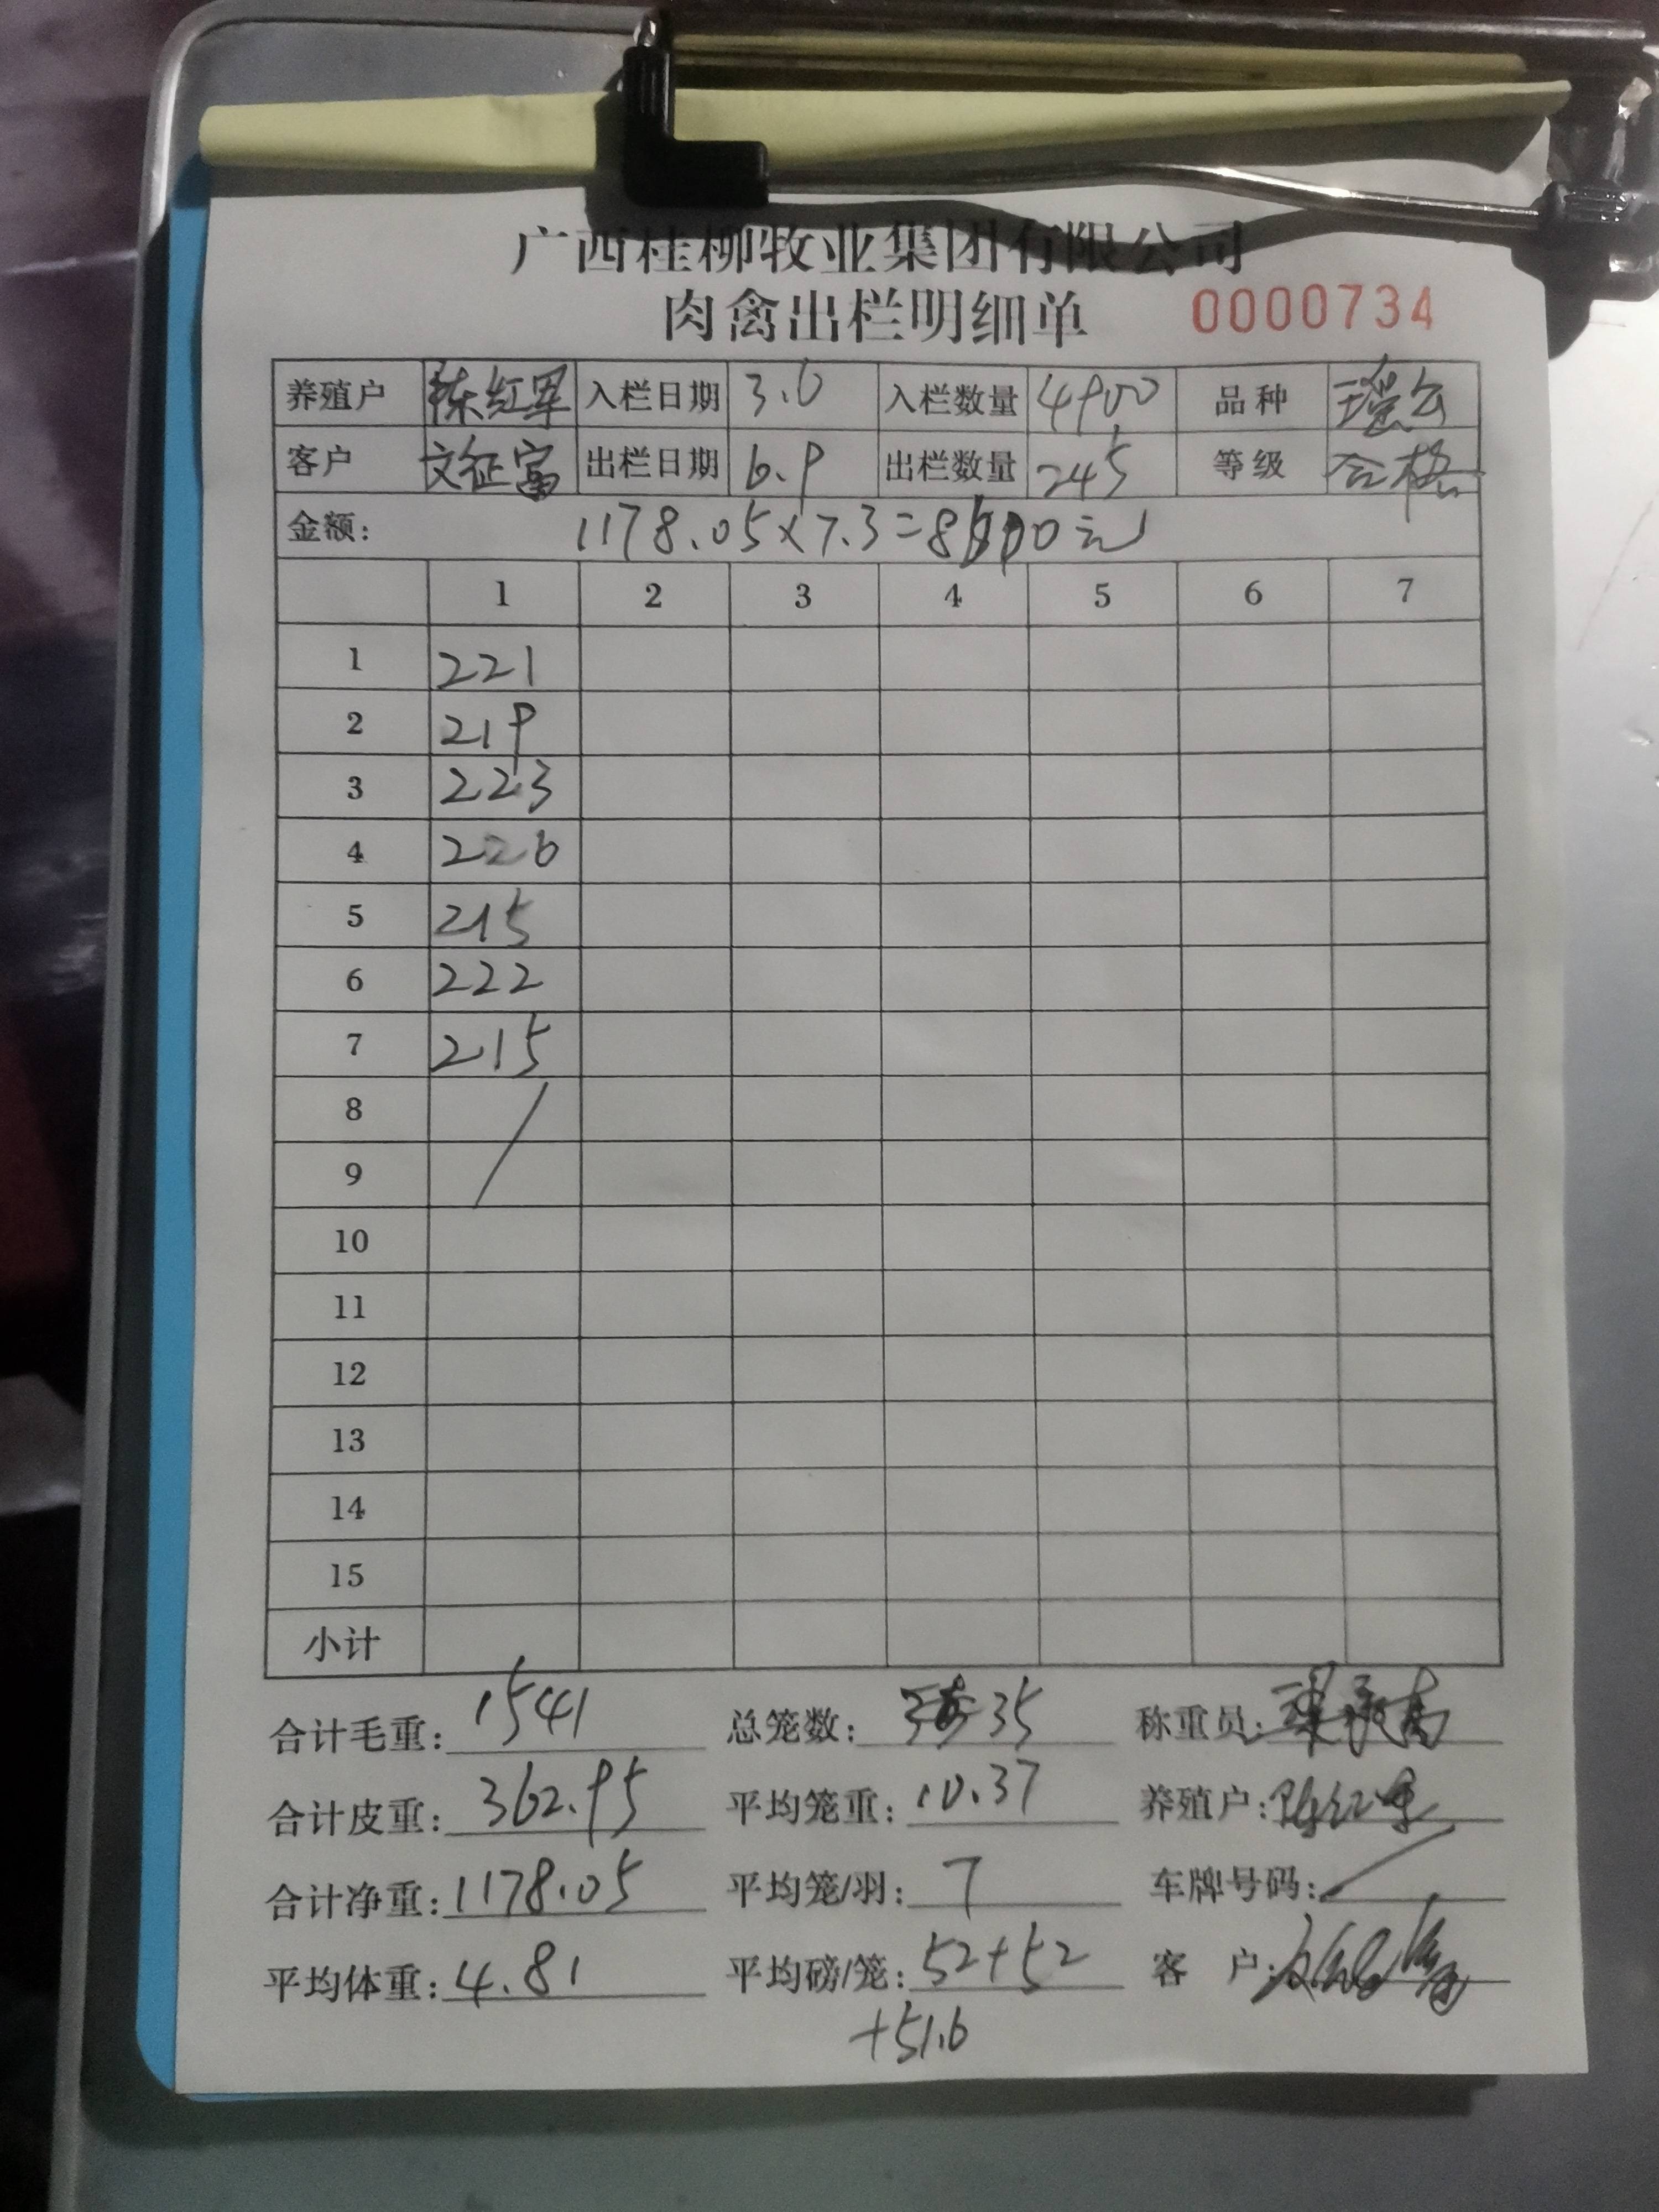 广西桂柳牧业集团有限公司
肉禽出栏明细单 0000734
养殖户 陈红军 入栏日期 3.6 入栏数量 4900 品种 瑶公
客户 文征富 出栏日期 6.9 出栏数量 245 等级 合格
金额： 1178.05×7.3=8 元
1 2 3 4 5 6 7
1 221
2 219
3 223
4 226
5 215
6 222
7 215
8
9
10
11
12
13
14
15
小计
合计毛重： 1541 总笼数： 35 称重员：
合计皮重： 362.95 平均笼重： 10.37 养殖户： 陈红军
合计净重： 1178.05 平均笼/羽： 7 车牌号码：
平均体重： 4.81 平均磅/笼： 52+52 客 户：
+51.6